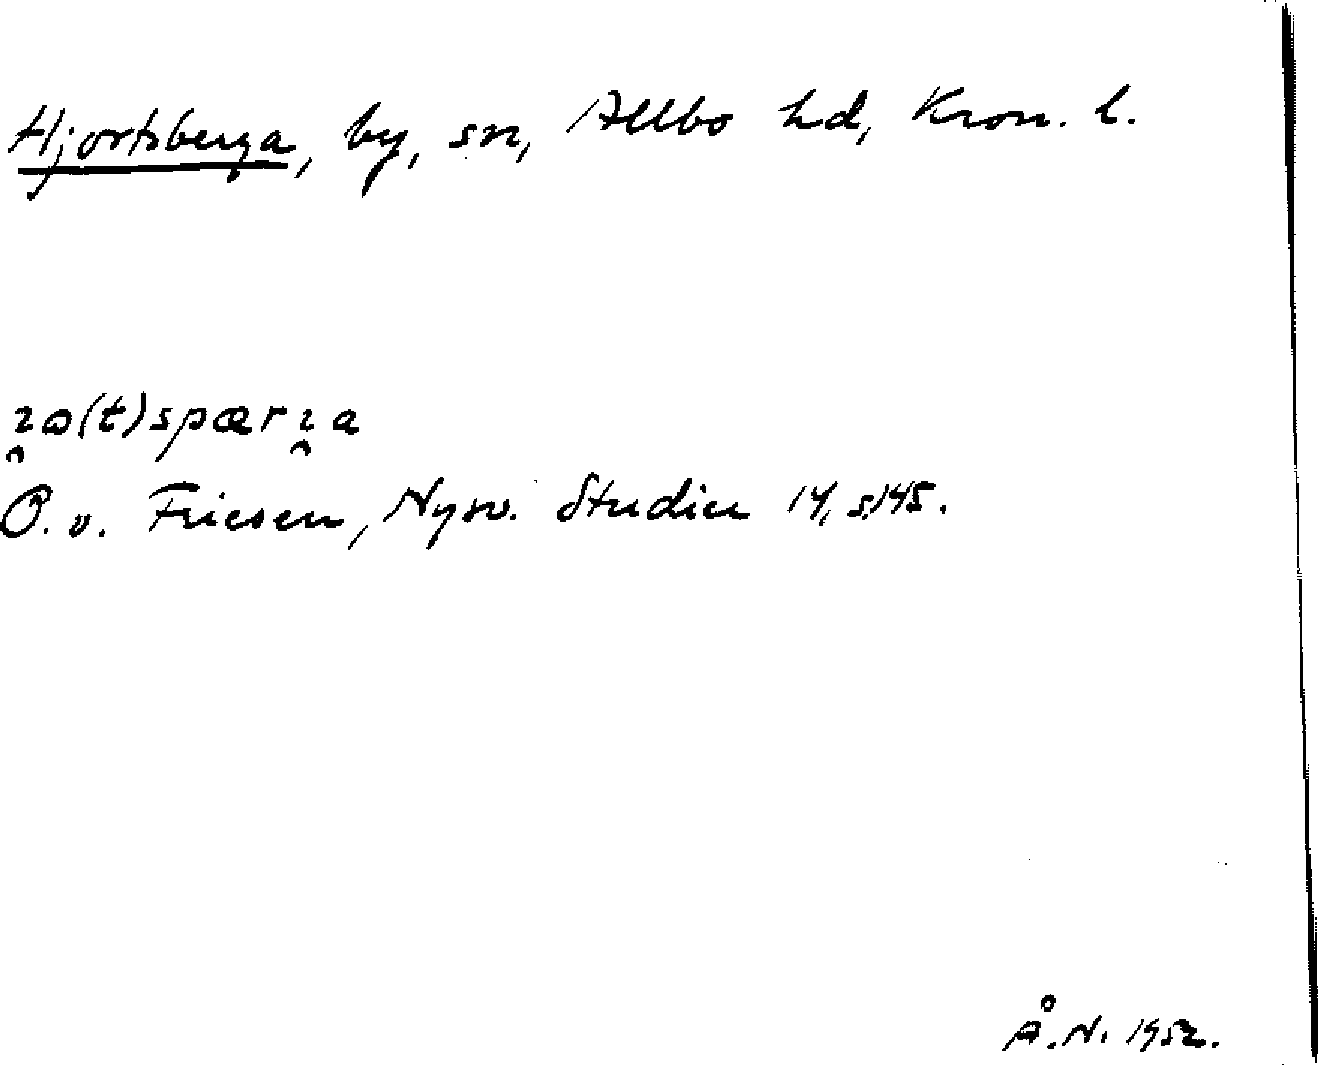 Hjortsberga, by, sn, Allbo hd, Kron. l.
ɿ̯ɷ(t)spærɿ̯a
O. v. Friesen, Nysv. Studier 14, s. 145.
Å. N. 1952.